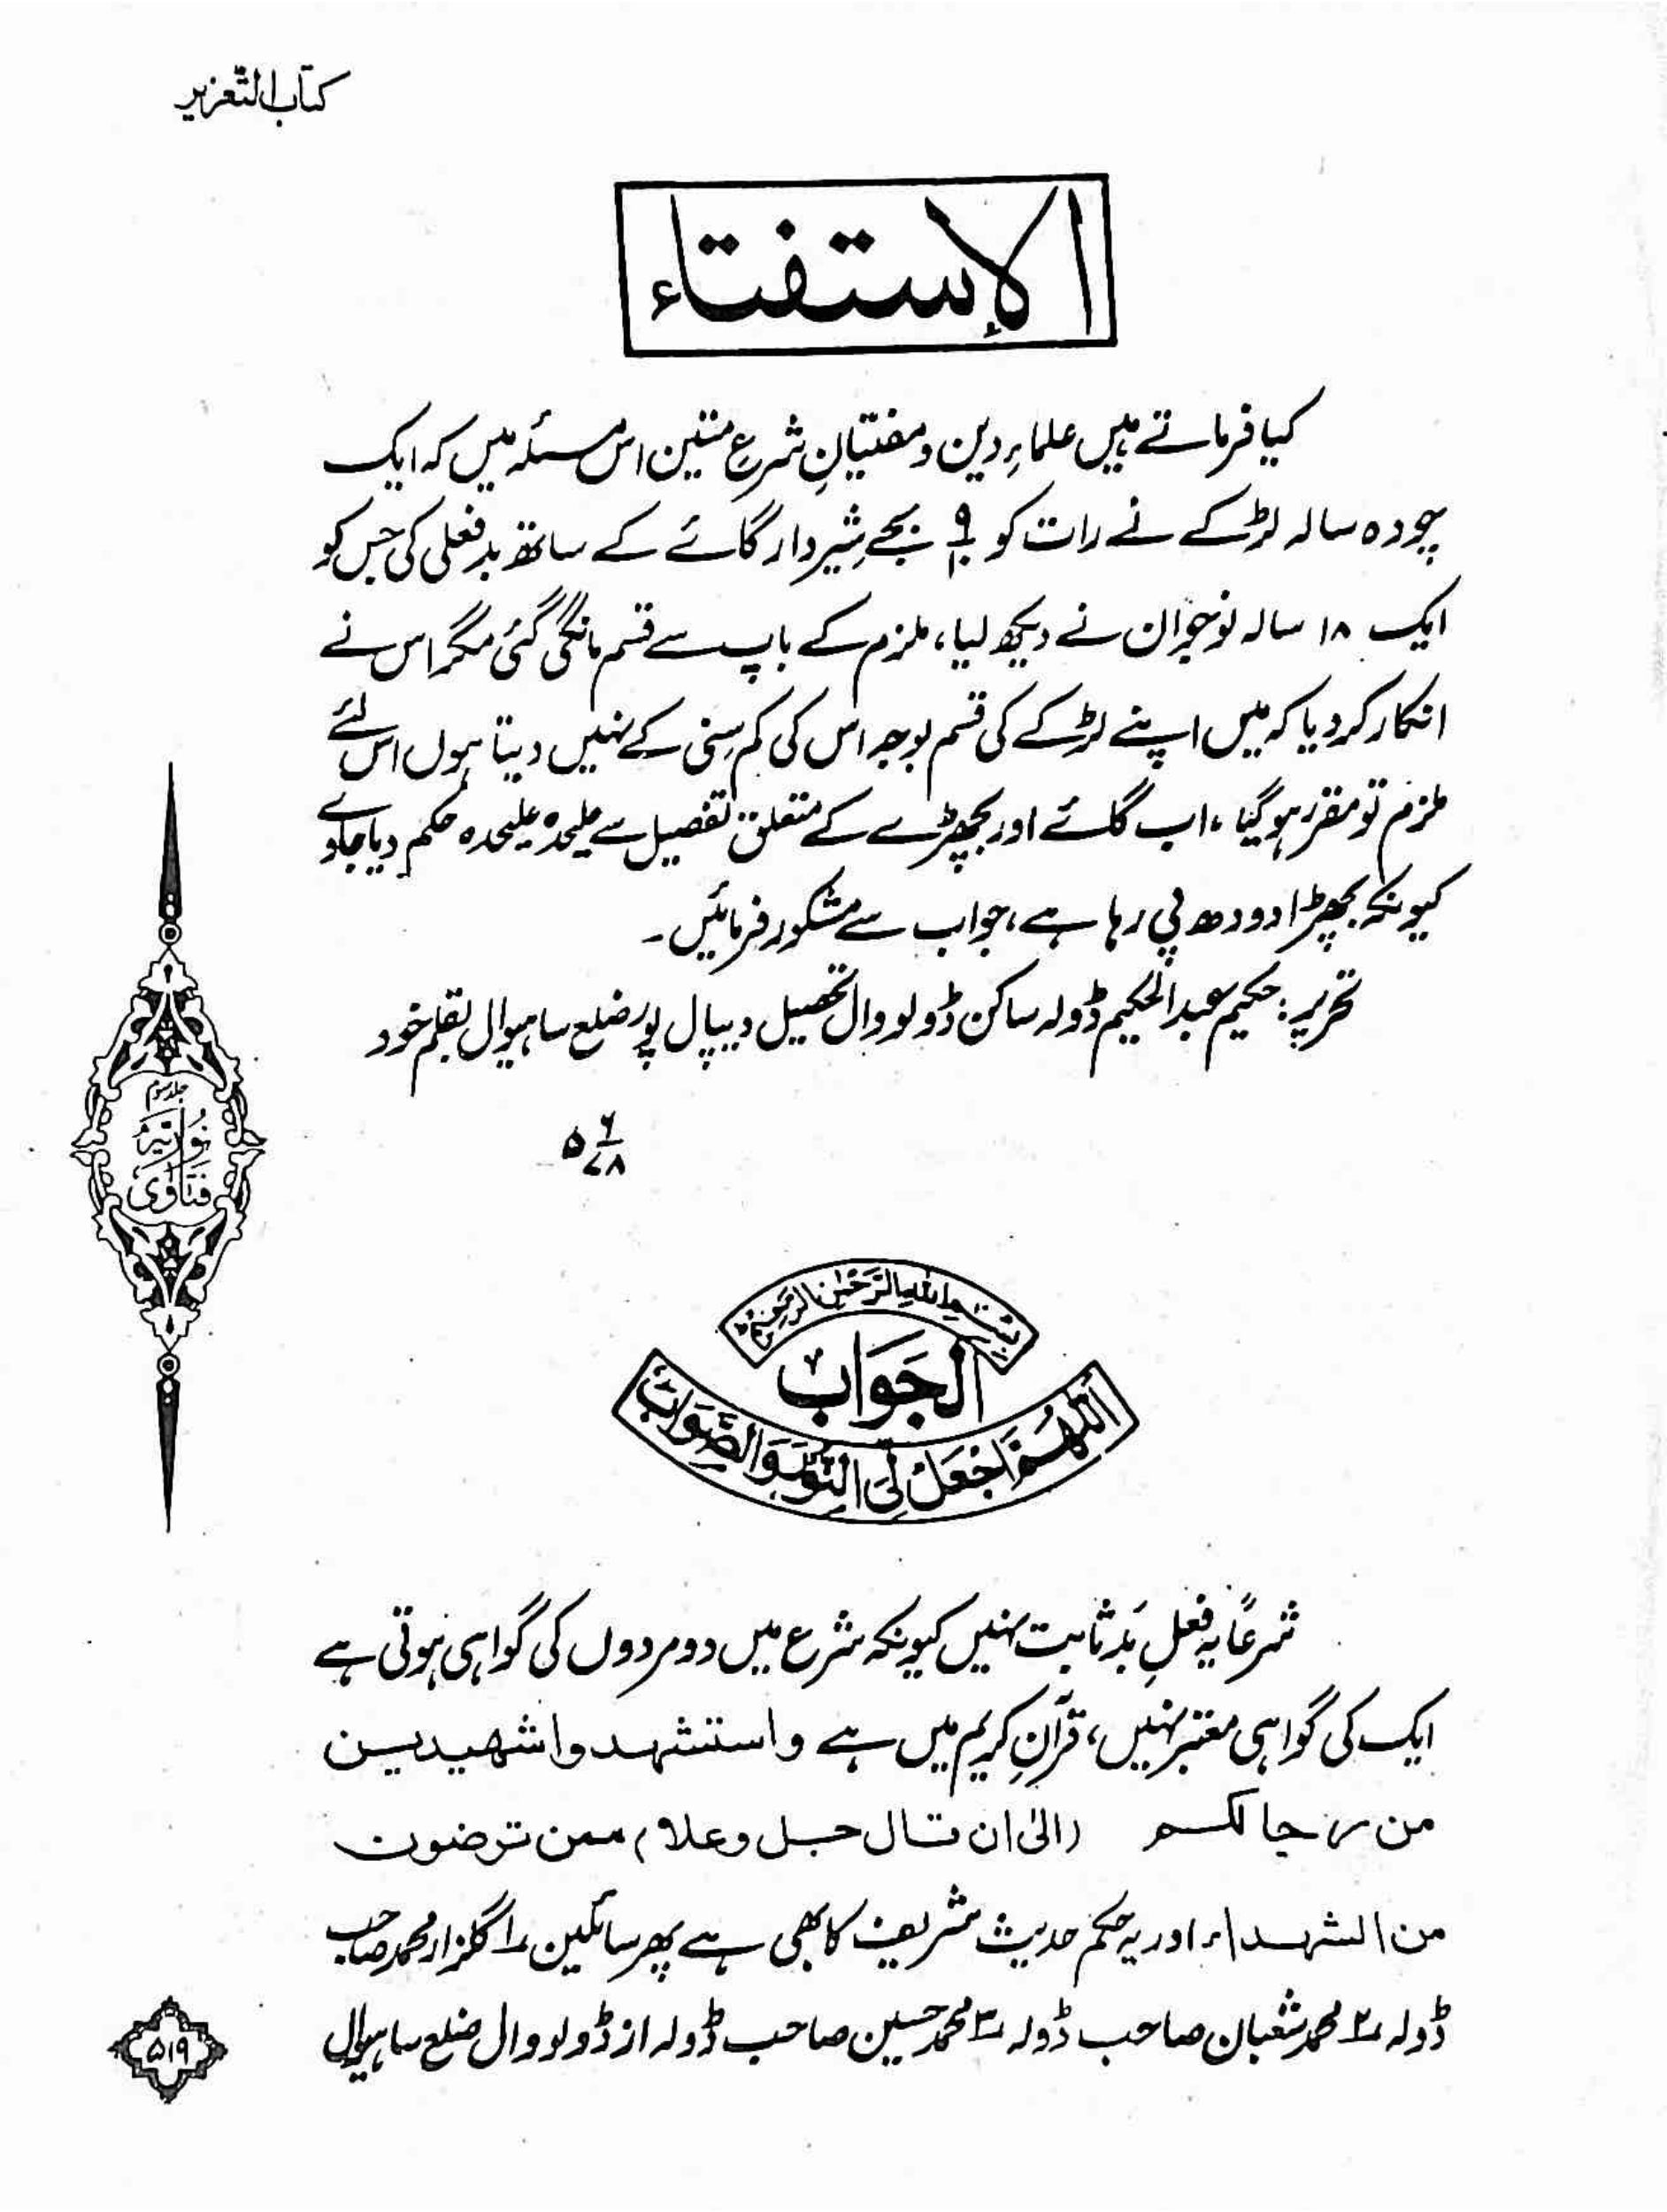 کتاب التعزیر
الاستفتاء
کیا فرماتے ہیں علماءِ دین و مفتیانِ شرعِ متین اس مسئلہ میں کہ ایک
چودہ سالہ لڑکے نے رات کو ۹ بجے شیردار گائے کے ساتھ بدفعلی کی جس کو
ایک ۱۸ سالہ نوجوان نے دیکھ لیا، ملزم کے باپ سے قسم مانگی گئی مگر اس نے
انکار کر دیا کہ میں اپنے لڑکے کی قسم بوجہ اس کی کم سنی کے نہیں دیتا ہوں اس لئے
ملزم تو مقرر ہو گیا، اب گائے اور بچھڑے کے متعلق تفصیل سے علیحدہ علیحدہ حکم دیا جاوے
کیونکہ بچھڑا دودھ پی رہا ہے، جواب سے مشکور فرمائیں۔
تحریر: حکیم عبدالحکیم ڈولہ ساکن ڈولووال تحصیل دیپال پور ضلع ساہیوال بقلم خود
۵ ۶/۷۸
جلد سوم
نوریہ
فتاوی
بسم الله الرحمن الرحیم
الجواب
اللهم اجعل لی النور والصواب
شرعاً یہ فعلِ بد ثابت نہیں کیونکہ شرع میں دو مردوں کی گواہی ہوتی ہے
ایک کی گواہی معتبر نہیں، قرآنِ کریم میں ہے واستشهدوا شهیدین
من رجالکم (الیٰ ان قال جل وعلا) ممن ترضون
من الشهداء اور یہ حکم حدیث شریف کا بھی ہے پھر سائلین ۱ گلزار محمد صاحب
ڈولہ ۲ محمد شعبان صاحب ڈولہ ۳ محمد حسین صاحب ڈولہ از ڈولووال ضلع ساہیوال
۵۱۹